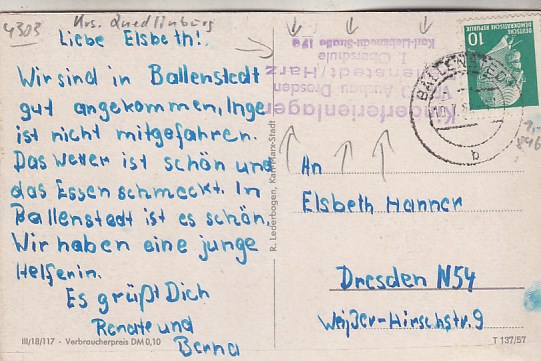 4303 Krs. Quedlinburg
Liebe Elsbeth!
Wir sind in Ballenstedt
gut angekommen, Inge
ist nicht mitgefahren.
Das Wetter ist schön und
das Essen schmeckt. In
Ballenstadt ist es schön.
Wir haben eine junge
Helferin.
Es grüßt Dich
Renate und
Berna
III/18/117 - Verbraucherpreis DM 0,10
R. Lederbogen, Karl-Marx-Stadt
Kinderferienlager
Ausbau Dresden
Ballenstedt/Harz
1. Oberschule
Karl-Liebknecht-Straße
DEUTSCHE
DEMOKRATISCHE REPUBLIK
10
BALLENSTEDT
b
An
Elsbeth Hanner
Dresden N54
Weißer-Hirschstr. 9
T 137/57